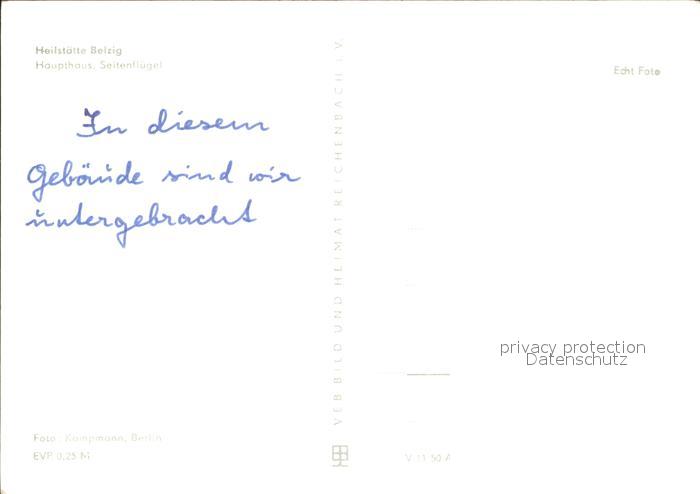 Heilstätte Belzig
Haupthaus, Seitenflügel
Echt Foto
In diesem
Gebäude sind wir
untergebracht
VEB BILD UND HEIMAT REICHENBACH i. V.
privacy protection
Datenschutz
Foto: Kampmann, Berlin
EVP 0,25 M
V 11 50 A